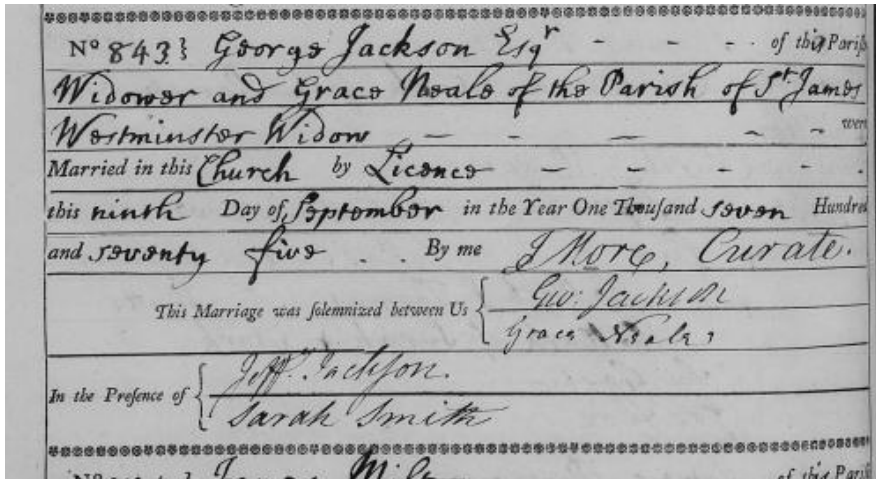 No 843} George Jackson Esqr - - - of this Parish
Widower and Grace Neale of the Parish of St. James
Westminster Widow - - - - - were
Married in this Church by Licence - - - - .
this ninth Day of September in the Year One Thousand seven Hundred
and seventy five . . By me J More, Curate.
This Marriage was solemnized between Us { Geo: Jackson
Grace Neale
In the Presence of { Jeffy. Jackson.
Sarah Smith
of this Parish